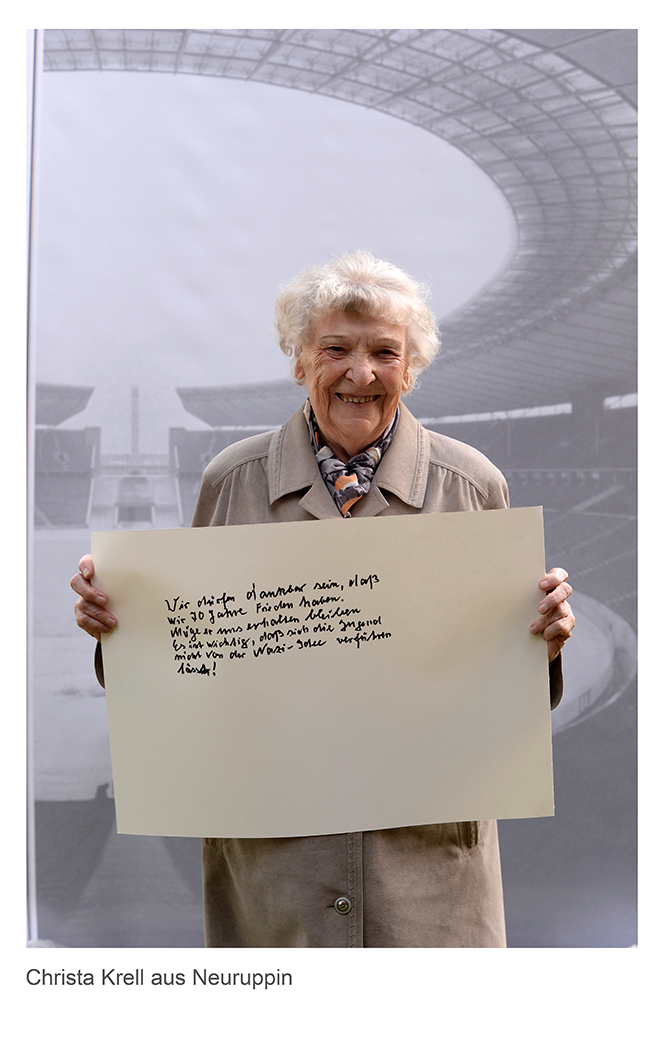 Wir dürfen dankbar sein, daß
wir 70 Jahre Frieden haben.
Möge er uns erhalten bleiben
Es ist wichtig, daß sich die Jugend
nicht von der Nazi-Idee verführen
lässt!
Christa Krell aus Neuruppin